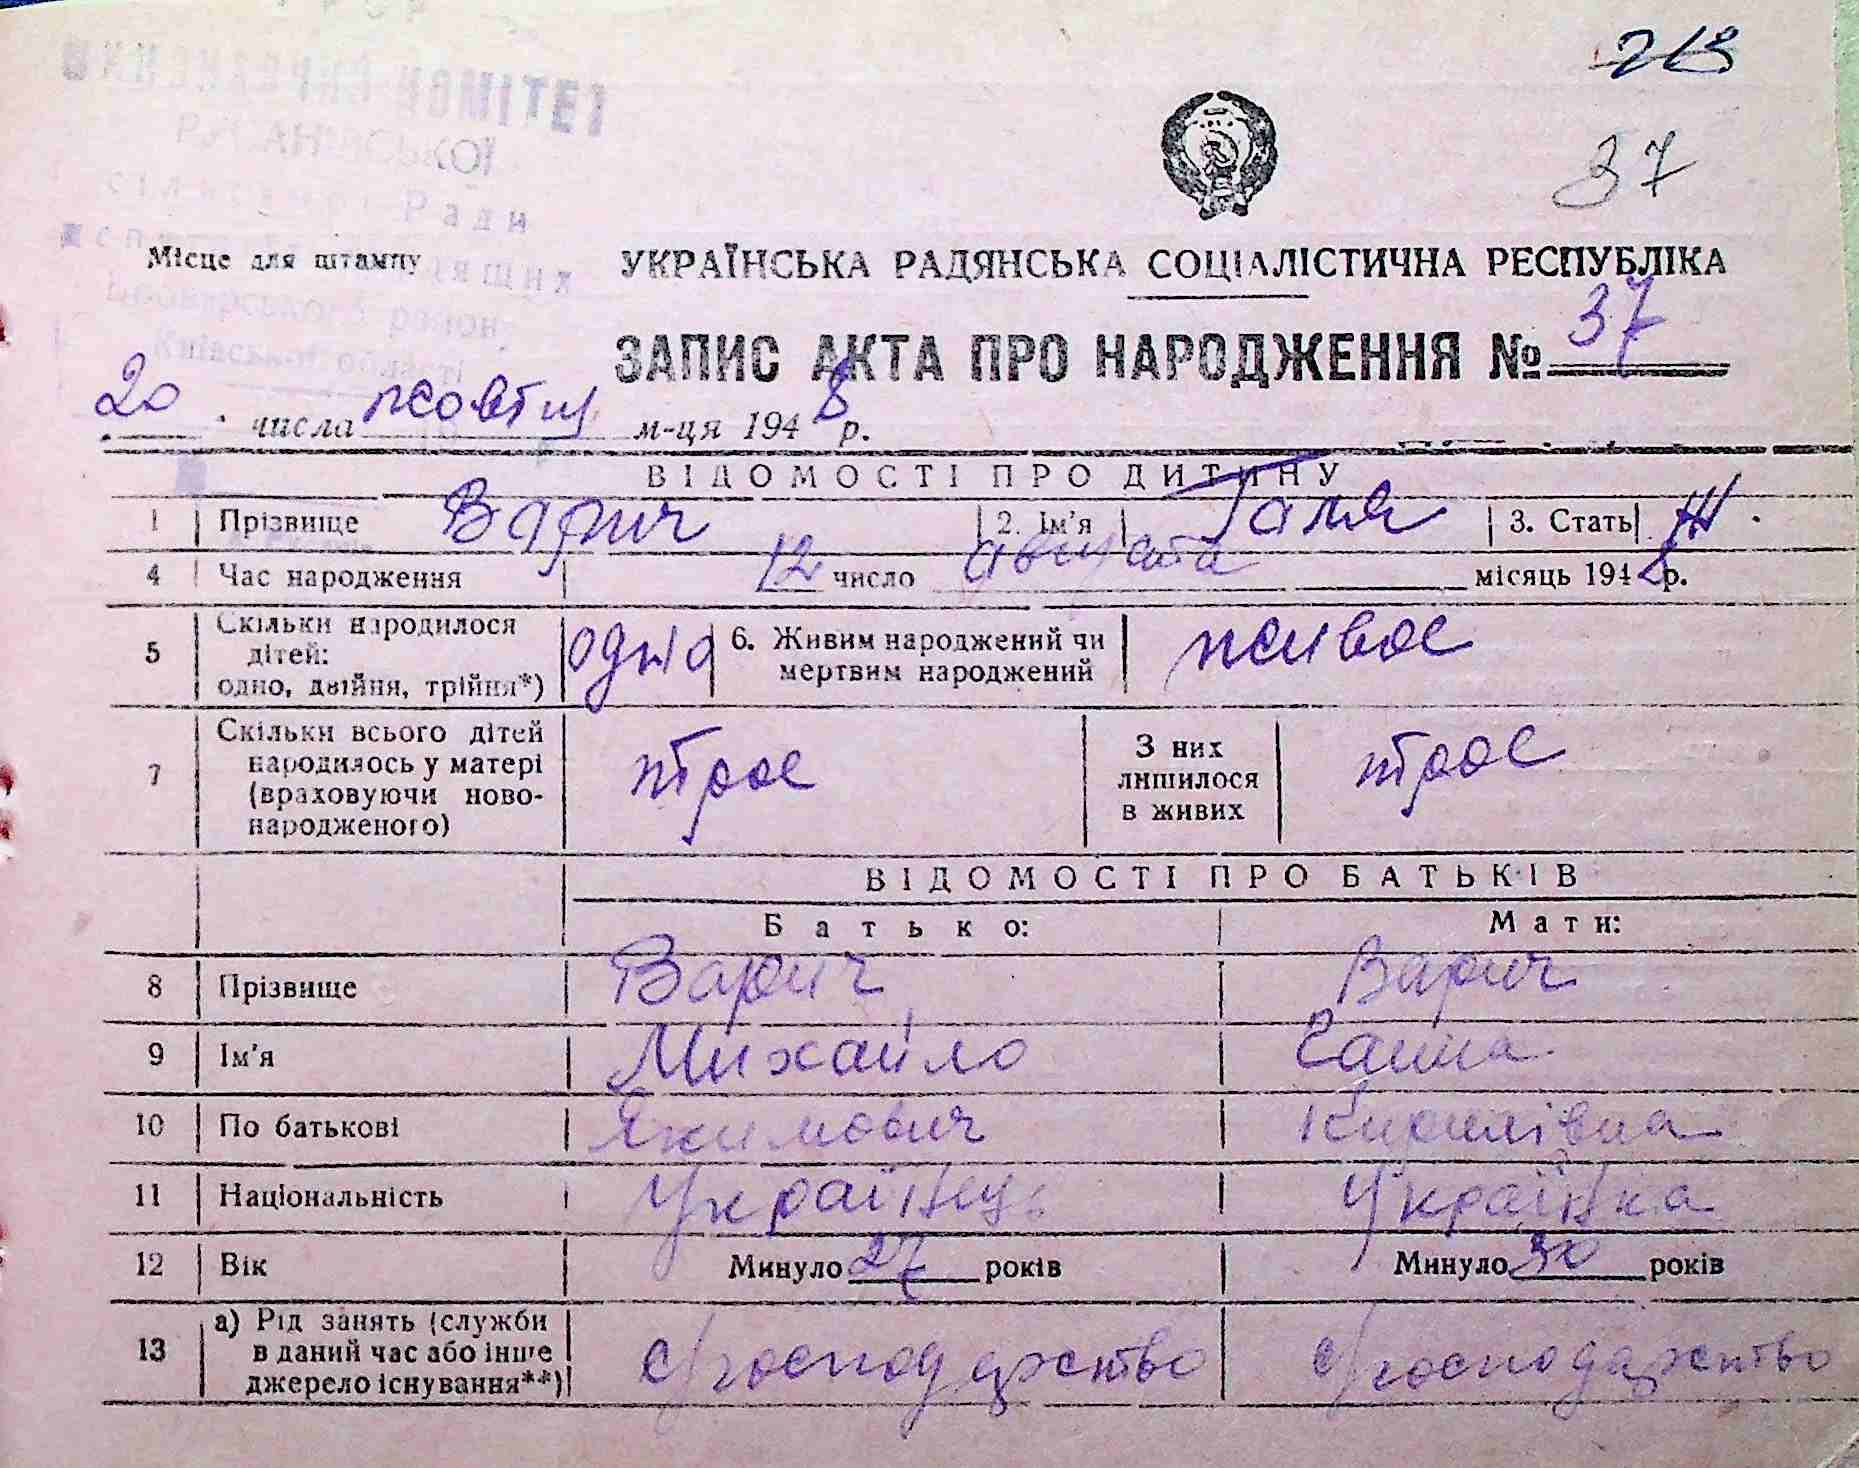 213
37
ВИКОНАВЧИЙ КОМІТЕТ
сільської Ради
Броварського району
Київської області
Місце для штампу
УКРАЇНСЬКА РАДЯНСЬКА СОЦІАЛІСТИЧНА РЕСПУБЛІКА
ЗАПИС АКТА ПРО НАРОДЖЕННЯ № 37
20 числа жовтня м-ця 1948 р.
ВІДОМОСТІ ПРО ДИТИНУ
1 Прізвище Варич 2. Ім'я Галя 3. Стать Ж.
4 Час народження 12 число августа місяць 1948 р.
5 Скільки народилося
дітей:
одно, двійня, трійня*) одно 6. Живим народжений чи
мертвим народжений живое
7 Скільки всього дітей
народилось у матері
(враховуючи ново-
народженого) трое З них
лишилося
в живих трое
ВІДОМОСТІ ПРО БАТЬКІВ
Батько: Мати:
8 Прізвище Варич Варич
9 Ім'я Михайло Ганна
10 По батькові Якимович Кирилівна
11 Національність Українець Українка
12 Вік Минуло 27 років Минуло 30 років
13 а) Рід занять (служби
в даний час або інше
джерело існування**) с/господарство с/господарство